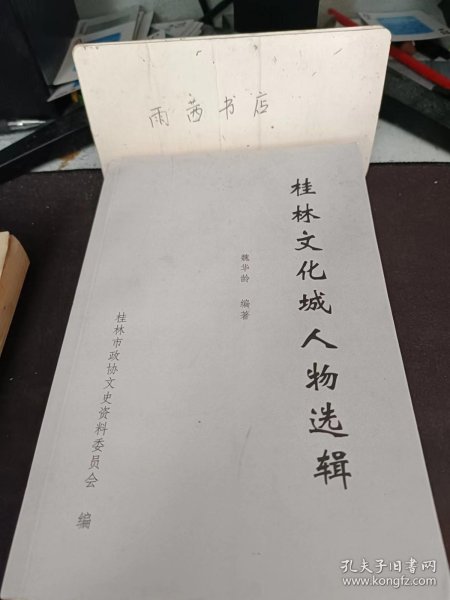 雨茜书店
桂林文化城人物选辑
魏华龄 编著
桂林市政协文史资料委员会 编
孔夫子旧书网
www.kongfz.com